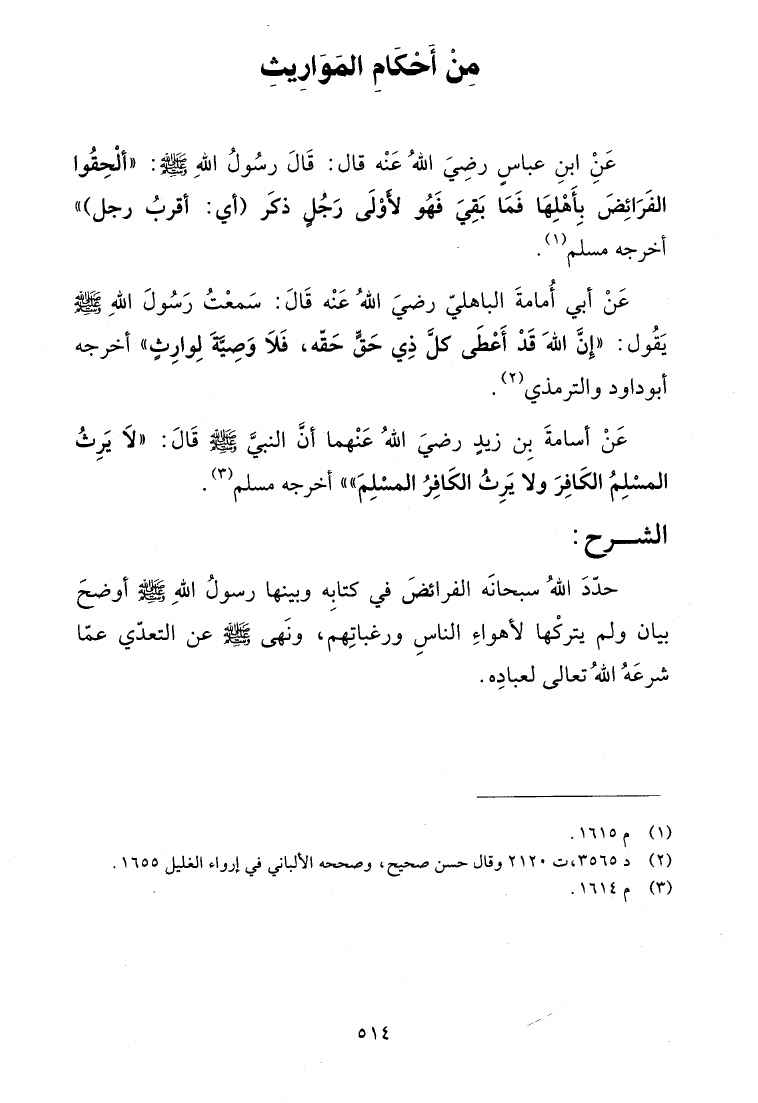 مِنْ أَحْكَامِ المَوَارِيثِ
عَنِ ابنِ عباسٍ رضِيَ اللهُ عَنْه قال: قَالَ رسُولُ اللهِ ﷺ: «ألْحِقُوا
الفَرَائِضَ بِأَهْلِهَا فَمَا بَقِيَ فَهُو لأَوْلَى رَجُلٍ ذكَر (أي: أقربُ رجل)»
أخرجه مسلم(١).
عَنْ أبي أُمامةَ الباهليّ رضيَ اللهُ عَنْه قَالَ: سَمعْتُ رَسُولَ اللهِ ﷺ
يَقُول: «إِنَّ اللهَ قَدْ أَعْطَى كلَّ ذِي حَقٍّ حَقّه، فَلَا وَصِيَّةَ لِوارِثٍ» أخرجه
أبوداود والترمذي(٢).
عَنْ أسامةَ بنِ زيدٍ رضيَ اللهُ عَنْهما أنَّ النبيَّ ﷺ قَالَ: «لَا يَرِثُ
المسْلِمُ الكَافِرَ ولا يَرِثُ الكَافِرُ المسْلِمَ»» أخرجه مسلم(٣).
الشـــرح:
حدّدَ اللهُ سبحانَه الفرائضَ في كتابِه وبينها رسولُ اللهِ ﷺ أوضحَ
بيان ولم يتركْها لأهواءِ الناسِ ورغباتِهم، ونَهى ﷺ عن التعدّي عمّا
شرعَهُ اللهُ تعالى لعبادِه.
(١) م ١٦١٥.
(٢) د ٣٥٦٥،ت ٢١٢٠ وقال حسن صحيح، وصححه الألباني في إرواء الغليل ١٦٥٥.
(٣) م ١٦١٤.
٥١٤